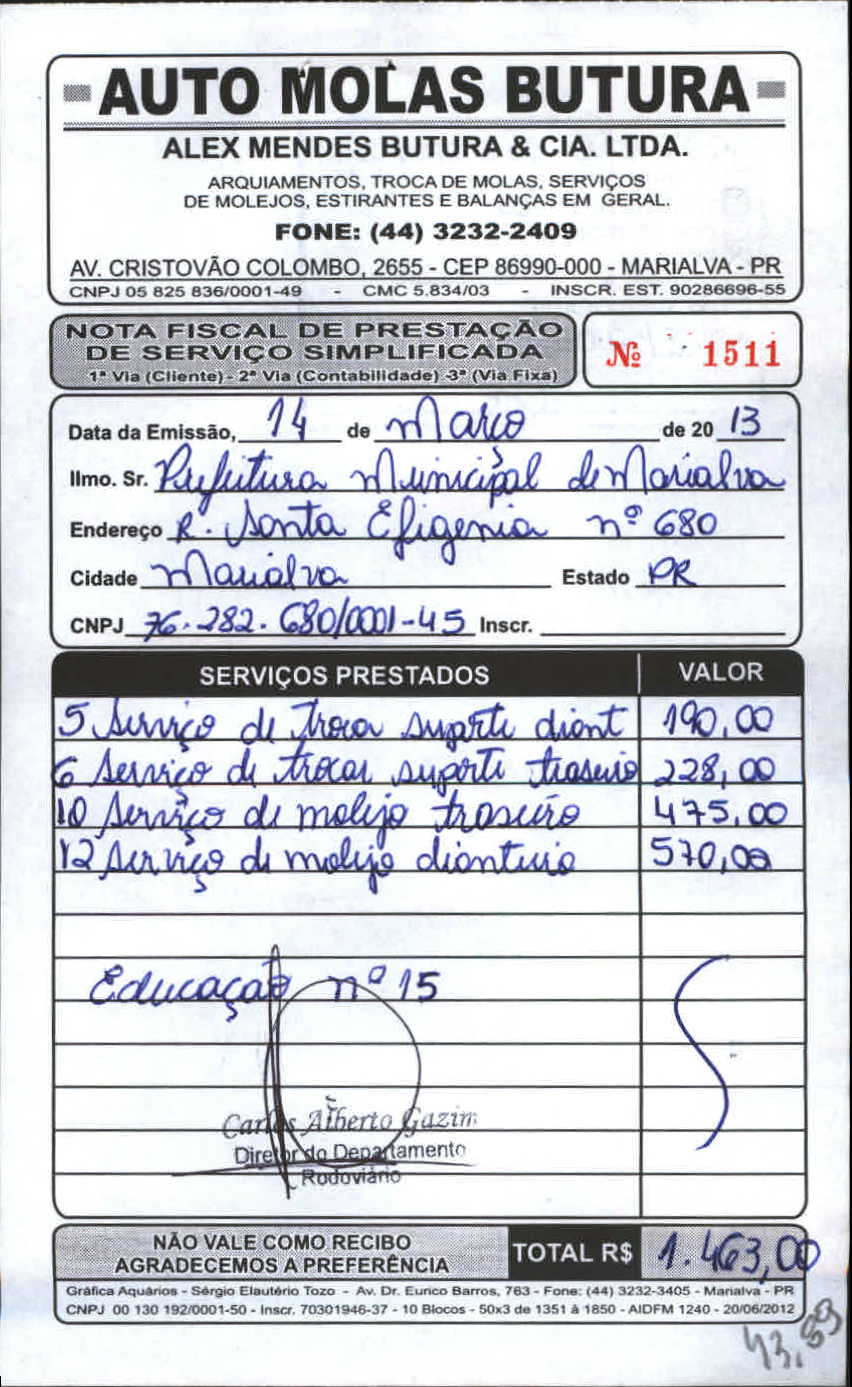 AUTO MOLAS BUTURA
ALEX MENDES BUTURA & CIA. LTDA.
ARQUIAMENTOS, TROCA DE MOLAS, SERVIÇOS
DE MOLEJOS, ESTIRANTES E BALANÇAS EM GERAL.
FONE: (44) 3232-2409
AV. CRISTOVÃO COLOMBO, 2655 - CEP 86990-000 - MARIALVA - PR
CNPJ 05 825 836/0001-49 - CMC 5.834/03 - INSCR. EST. 90286696-55
NOTA FISCAL DE PRESTAÇÃO
DE SERVIÇO SIMPLIFICADA
1ª Via (Cliente) - 2ª Via (Contabilidade) -3ª (Via Fixa)
Nº 1511
Data da Emissão, 14 de Março de 20 13
Ilmo. Sr. Prefeitura Municipal de Marialva
Endereço R. Santa Efigenia nº 680
Cidade Marialva Estado PR
CNPJ 76.282.680/0001-45 Inscr.
SERVIÇOS PRESTADOS VALOR
5 Serviço de troca suporte diant 190,00
6 Serviço de trocar suporte traseiro 228,00
10 Serviço de molejo traseiro 475,00
12 Serviço de molejo dianteiro 570,00
Educação nº 15
Carlos Alberto Gazim
Diretor do Departamento
Rodoviário
NÃO VALE COMO RECIBO
AGRADECEMOS A PREFERÊNCIA
TOTAL R$ 1.463,00
Gráfica Aquários - Sérgio Elautério Tozo - Av. Dr. Eurico Barros, 763 - Fone: (44) 3232-3405 - Marialva - PR
CNPJ 00 130 192/0001-50 - Inscr. 70301946-37 - 10 Blocos - 50x3 de 1351 à 1850 - AIDFM 1240 - 20/06/2012
43,89